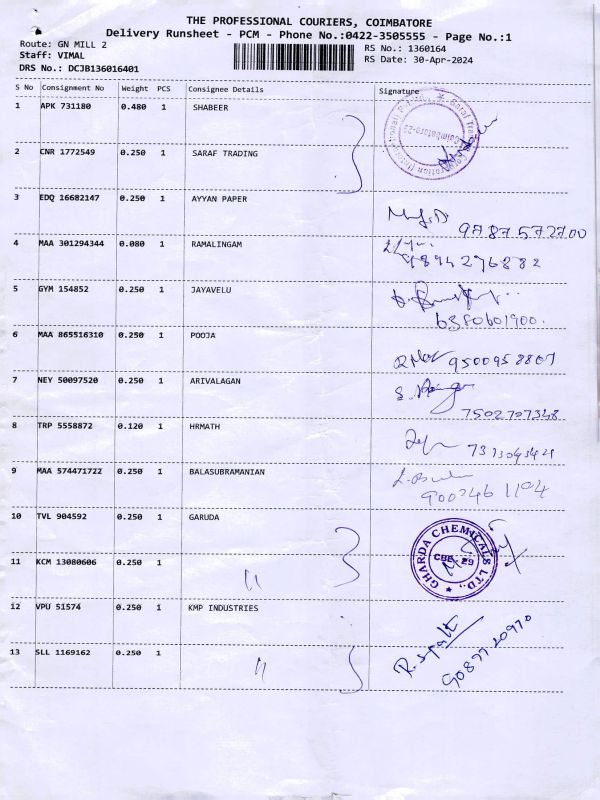 THE PROFESSIONAL COURIERS, COIMBATORE
Delivery Runsheet - PCM - Phone No.:0422-3505555 - Page No.:1
Route: GN MILL 2
RS No.: 1360164
Staff: VIMAL
RS Date: 30-Apr-2024
DRS No.: DCJB136016401
S No Consignment No Weight PCS Consignee Details Signature
1 APK 731180 0.480 1 SHABEER
2 CNR 1772549 0.250 1 SARAF TRADING
3 EDQ 16682147 0.250 1 AYYAN PAPER
9787572700
4 MAA 301294344 0.080 1 RAMALINGAM
9894296882
5 GYM 154852 0.250 1 JAYAVELU
6380601900.
6 MAA 865516310 0.250 1 POOJA
9500958807
7 NEY 50097520 0.250 1 ARIVALAGAN
7502707348
8 TRP 5558872 0.120 1 HRMATH
9 MAA 574471722 0.250 1 BALASUBRAMANIAN
9002461104
10 TVL 904592 0.250 1 GARUDA
GHARDA CHEMICALS LTD.,
CBE-29
11 KCM 13080606 0.250 1 "
12 VPU 51574 0.250 1 KMP INDUSTRIES
13 SLL 1169162 0.250 1 "